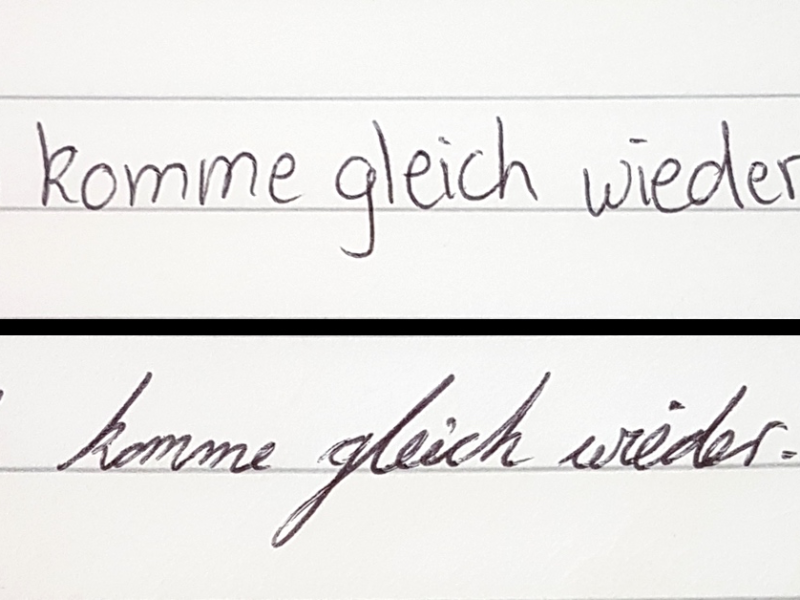 komme gleich wieder
komme gleich wieder.